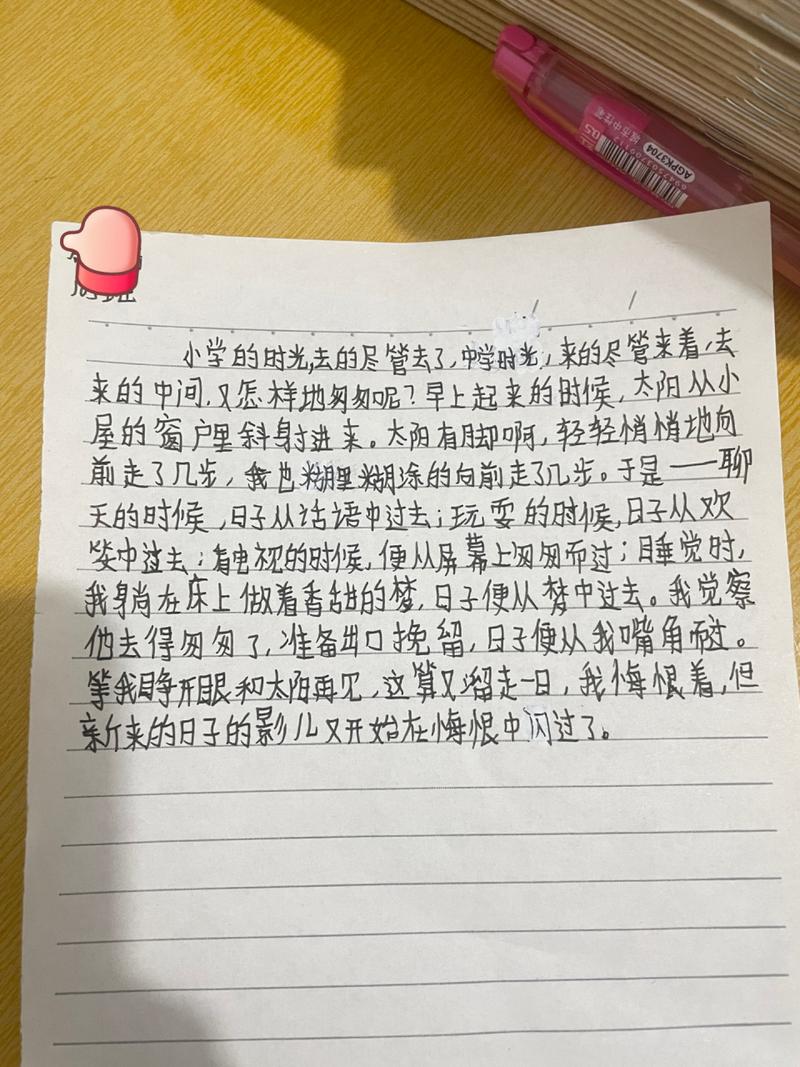 AGPK3704
0.5
城市中性笔
班
小学的时光,去的尽管去了,中学时光,来的尽管来着,去
来的中间,又怎样地匆匆呢?早上起来的时候,太阳从小
屋的窗户里斜射进来。太阳有脚啊,轻轻悄悄地向
前走了几步,我也糊里糊涂的向前走了几步。于是——聊
天的时候,日子从话语中过去;玩耍的时候,日子从欢
笑中过去;看电视的时候,便从屏幕上匆匆而过;睡觉时,
我躺在床上做着香甜的梦,日子便从梦中过去。我觉察
他去得匆匆了,准备出口挽留,日子便从我嘴角而过。
等我睁开眼和太阳再见,这算又溜走一日,我悔恨着,但
新来的日子的影儿又开始在悔恨中闪过了。